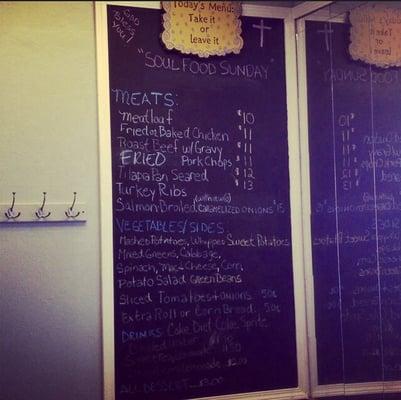 God
Bless
You!
Today's Menu:
Take it
or
leave it
"SOUL FOOD SUNDAY"
MEATS:
Meatloaf $10
Fried or Baked Chicken $11
Roast Beef w/ Gravy $11
FRIED Pork Chops $11
Tilapia Pan Seared $12
Turkey Ribs $13
Salmon Broiled CARAMELIZED ONIONS $15
VEGETABLES/SIDES
Mashed Potatoes, Whipped Sweet Potatoes
Mixed Greens, Cabbage,
Spinach, Mac+Cheese, Corn,
Potato Salad Green Beans
Sliced Tomatoes+onions 50¢
Extra Roll or Corn Bread 50¢
DRINKS: Coke Diet Coke Sprite
$2.00
ALL DESSERT $3.00